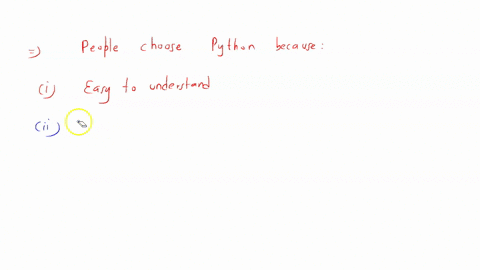 =) People choose Python because:
(i) Easy to understand
(ii)